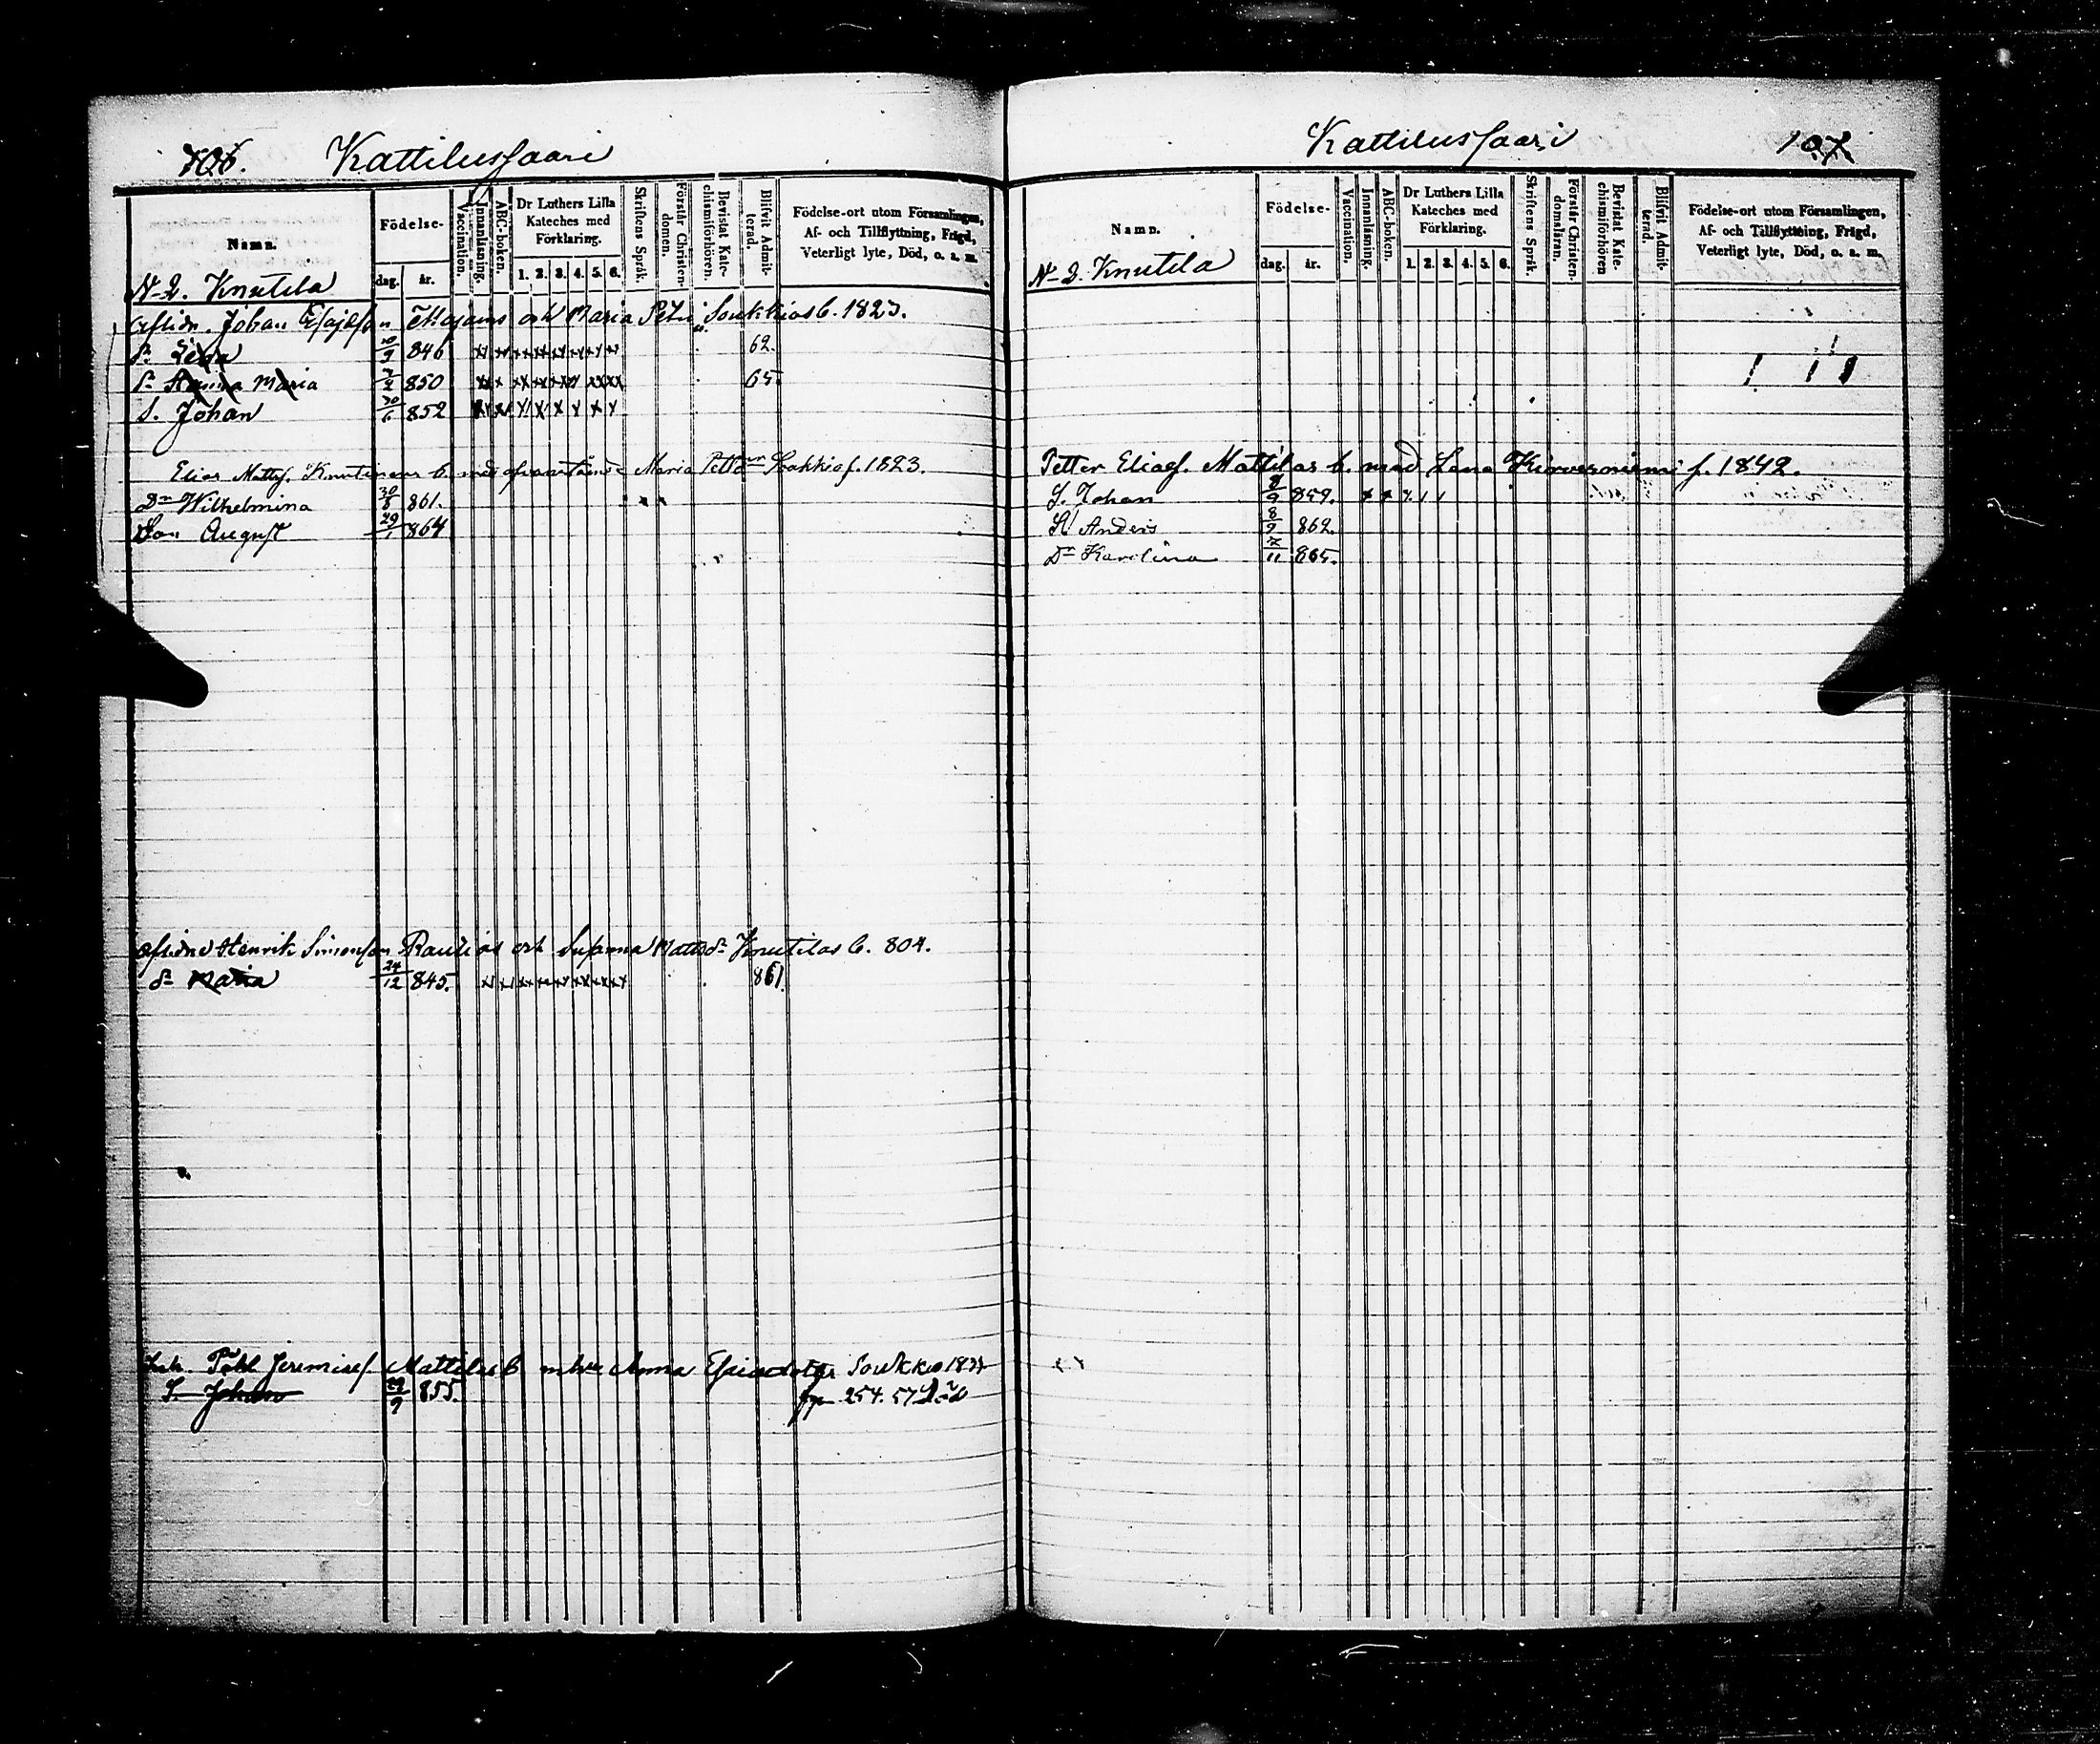 106. Kattilussaari
Namn.
Födelse-
dag. år.
Vaccination.
Innanläsning.
ABC-boken.
Dr Luthers Lilla Kateches med Förklaring.
1. 2. 3. 4. 5. 6.
Skriftens Språk.
Förstår Christendomen.
Bevistat Katechismiförhören.
Blifvit Admitterad.
Födelse-ort utom Församlingen,
Af- och Tillflyttning, Frägd,
Veterligt lyte, Död, o. s. m.
N-2. Knutila
Aflidn. Johan Esajæson Thojans och Maria Petri Soukkios b. 1823.
dr Lena 20/9 846 62.
dr Maria 850 65.
S. Johan 30/6 852
Elias Matts. Knutinens b. med ofvanstående Maria Pettdr f. 1823.
Dr Wilhelmina 30/8 861.
Son August 29/1 864
Aflidne Henrik Simonson Rautios och Susanna Mattsdr Knutilas b. 804.
dr Maria 24/12 845. 861.
Påhl Jeremiæs. Mattilas b. Anna Soukkio
S. Johan 29/9 855. 254. 57
Kattilussaari 107
Namn.
Födelse-
dag. år.
Vaccination.
Innanläsning.
ABC-boken.
Dr Luthers Lilla Kateches med Förklaring.
1. 2. 3. 4. 5. 6.
Skriftens Språk.
Förstår Christendomslæran.
Bevistat Katechismiförhören
Blifvit Admitterad.
Födelse-ort utom Församlingen,
Af- och Tillflyttning, Frägd,
Veterligt lyte, Död, o. s. m.
N-2. Knutila
Petter Eliæs. Mattilas b. med Lena Kirvesniemi f. 1842.
S. Johan 8/9 859.
S. Anders 8/9 862.
Dr Karolina 7/11 865.